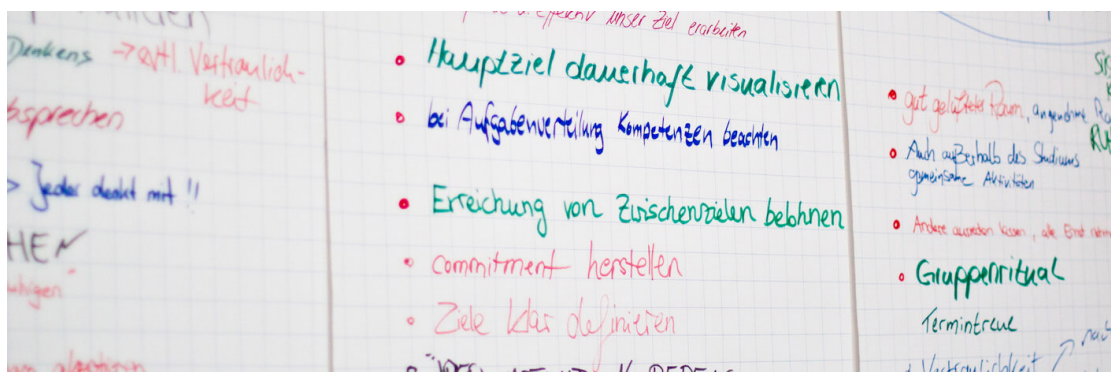 Denkens → evtl. Vertraulich-
keit
bsprechen
> Jeder denkt mit !!
HEN
uhigen"
effektiv unser Ziel erarbeiten
• Hauptziel dauerhaft visualisieren
• bei Aufgabenverteilung Kompetenzen beachten
• Erreichung von Zwischenzielen belohnen
• commitment herstellen
• Ziele klar definieren
• gut gelüfteter Raum, angenehme
• Auch außerhalb des Studiums
gemeinsame Aktivitäten
• Andere ausreden lassen, alle Ernst
• Gruppenritual
Termintreue
Vertraulichkeit